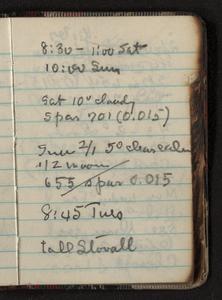 8:30 - 1:00 Sat
10:00 Sun
Sat 10° cloudy
spar 701 (0.015)
Sun 2/1 50 clear calm
1/2 moon
655 spar 0.015
8:45 Tues
tall Stovall